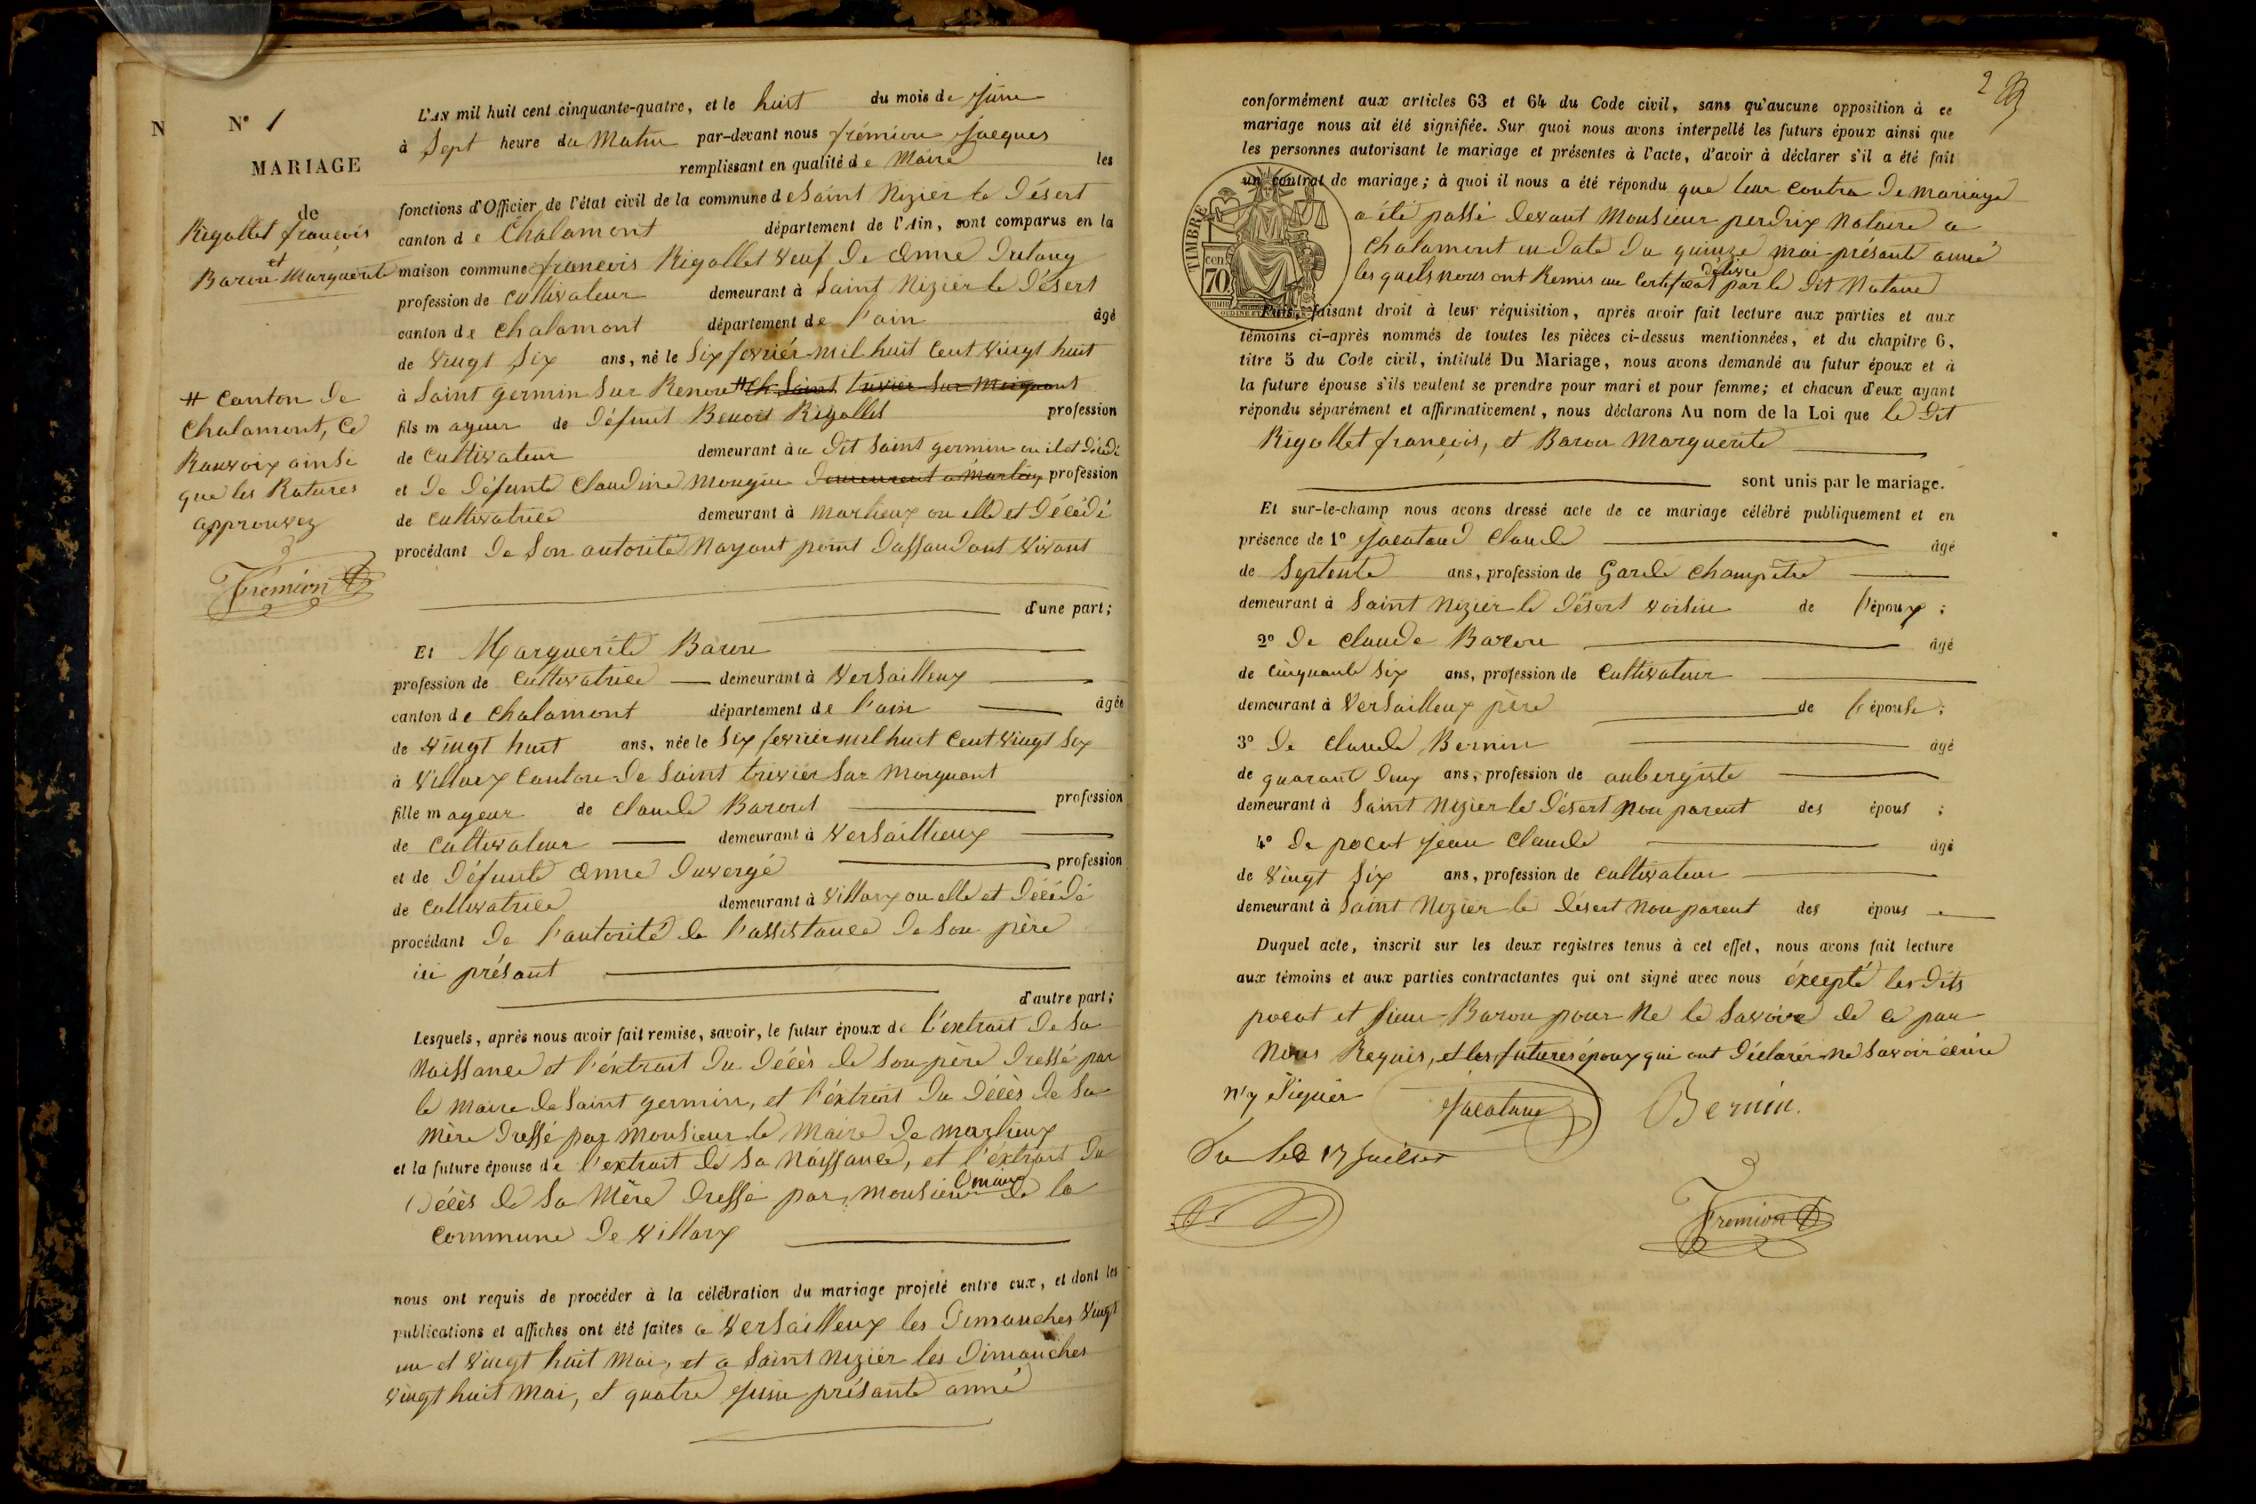 N
N° 1
MARIAGE
de
Rigollet françois
et
Baron Marguerite
# Canton de
Chalamont, Ce
Ranvoix ainsi
que les Ratures
approuvez
Fremion
L'AN mil huit cent cinquante-quatre, et le huit du mois de Juin
à Sept heure du Matin par-devant nous frémion Jacques
remplissant en qualité de Maire les
fonctions d'Officier de l'état civil de la commune de Saint Nizier le Désert
canton de Chalamont département de l'Ain, sont comparus en la
maison commune françois Rigollet veuf de Anne Dulong
profession de cultivateur demeurant à Saint Nizier le Désert
canton de Chalamont département de l'ain âgé
de vingt Six ans, né le Six fevriér mil huit Cent vingt huit
à Saint germin sur Renon # ch Saint trivier sur Moignant
fils mageur de défunt Benoit Rigollet profession
de cultivateur demeurant à u dit Saint germin ou il et décédé
et de défunte Claudine Mougin demeurant a Marlieux profession
de cultivatrice demeurant à Marlieux ou elle et décédé
procédant de Son autorité Nayant point dassandant vivant
d'une part;
Et Marguerite Baron
profession de cultivatrice demeurant à Versailleux
canton de Chalamont département de l'ain âgée
de vingt huit ans, née le Six fevriér mil huit Cent vingt Six
à Villarx Canton de Saint trivier sur Moignant
fille mageur de Claude Baront profession
de cultivateur demeurant à Versaillieux
et de défunte Anne duvergé profession
de cultivatrice demeurant à Villarx ou elle et décédé
procédant de l'autorité de l'assistance de Son père
ici présant
d'autre part;
Lesquels, après nous avoir fait remise, savoir, le futur époux de l'extrait de Sa
Naissance et l'éxtrait du décès de Son père dressé par
le Maire de Saint germin, et l'éxtrait du décès de Sa
Mère dressé par Monsieur le Maire de Marlieux
et la future épouse de l'extrait de Sa Naissance, et l'éxtrait du
décès de Sa Mère dressé par Monsieur le maire de la
Commune de Villarx
nous ont requis de procéder à la célébration du mariage projeté entre eux, et dont les
publications et affiches ont été faites a Versailleux les dimanches vingt
un et vingt huit Mai, et a Saint Nizier les dimanches
vingt huit Mai, et quatre Juin présante anné
2
conformément aux articles 63 et 64 du Code civil, sans qu'aucune opposition à ce
mariage nous ait été signifiée. Sur quoi nous avons interpellé les futurs époux ainsi que
les personnes autorisant le mariage et présentes à l'acte, d'avoir à déclarer s'il a été fait
un contrat de mariage; à quoi il nous a été répondu que leur contra de mariage
a été passé devant Monsieur perdrix Notaire a
Chalamont en date du quinze mai présante anné
les quels nous ont Remis un Certificat délivré par le dit Notaire
TIMBRE
cen
70
Puis, faisant droit à leur réquisition, après avoir fait lecture aux parties et aux
témoins ci-après nommés de toutes les pièces ci-dessus mentionnées, et du chapitre 6,
titre 5 du Code civil, intitulé Du Mariage, nous avons demandé au futur époux et à
la future épouse s'ils veulent se prendre pour mari et pour femme; et chacun d'eux ayant
répondu séparément et affirmativement, nous déclarons Au nom de la Loi que le dit
Rigollet françois, et Baron Marguerite
sont unis par le mariage.
Et sur-le-champ nous avons dressé acte de ce mariage célébré publiquement et en
présence de 1° Jacatond Claude âgé
de Septente ans, profession de Garde Champêtre
demeurant à Saint Nizier le Désert voisin de l'époux;
2° de Claude Baron âgé
de Cinquante Six ans, profession de cultivateur
demeurant à Versailleux père de l'épouse;
3° de Claude Bernin âgé
de quarant deux ans, profession de aubergiste
demeurant à Saint Nizier le Désert non parent des épous;
4° de pocat Jean Claude âgé
de vingt Six ans, profession de cultivateur
demeurant à Saint Nizier le désert non parent des épous
Duquel acte, inscrit sur les deux registres tenus à cet effet, nous avons fait lecture
aux témoins et aux parties contractantes qui ont signé avec nous éxcepté les dits
pocat et sieur Baron pour Ne le Savoire de ce par
Nous Requis, et les futures époux qui ont déclarér ne Savoir écrire
n'y Signér
Bernin.
Vu le 17 Juillet
Fremion